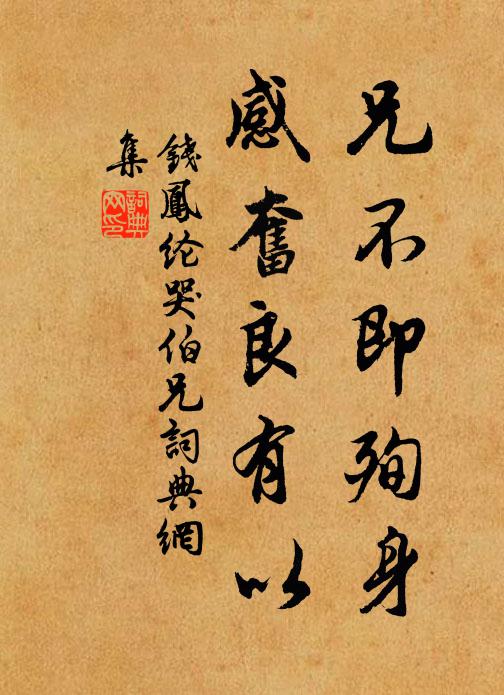 兄不即殉身
感奮良有以
錢鳳纶哭伯兄詞典網
集
詞典
网印